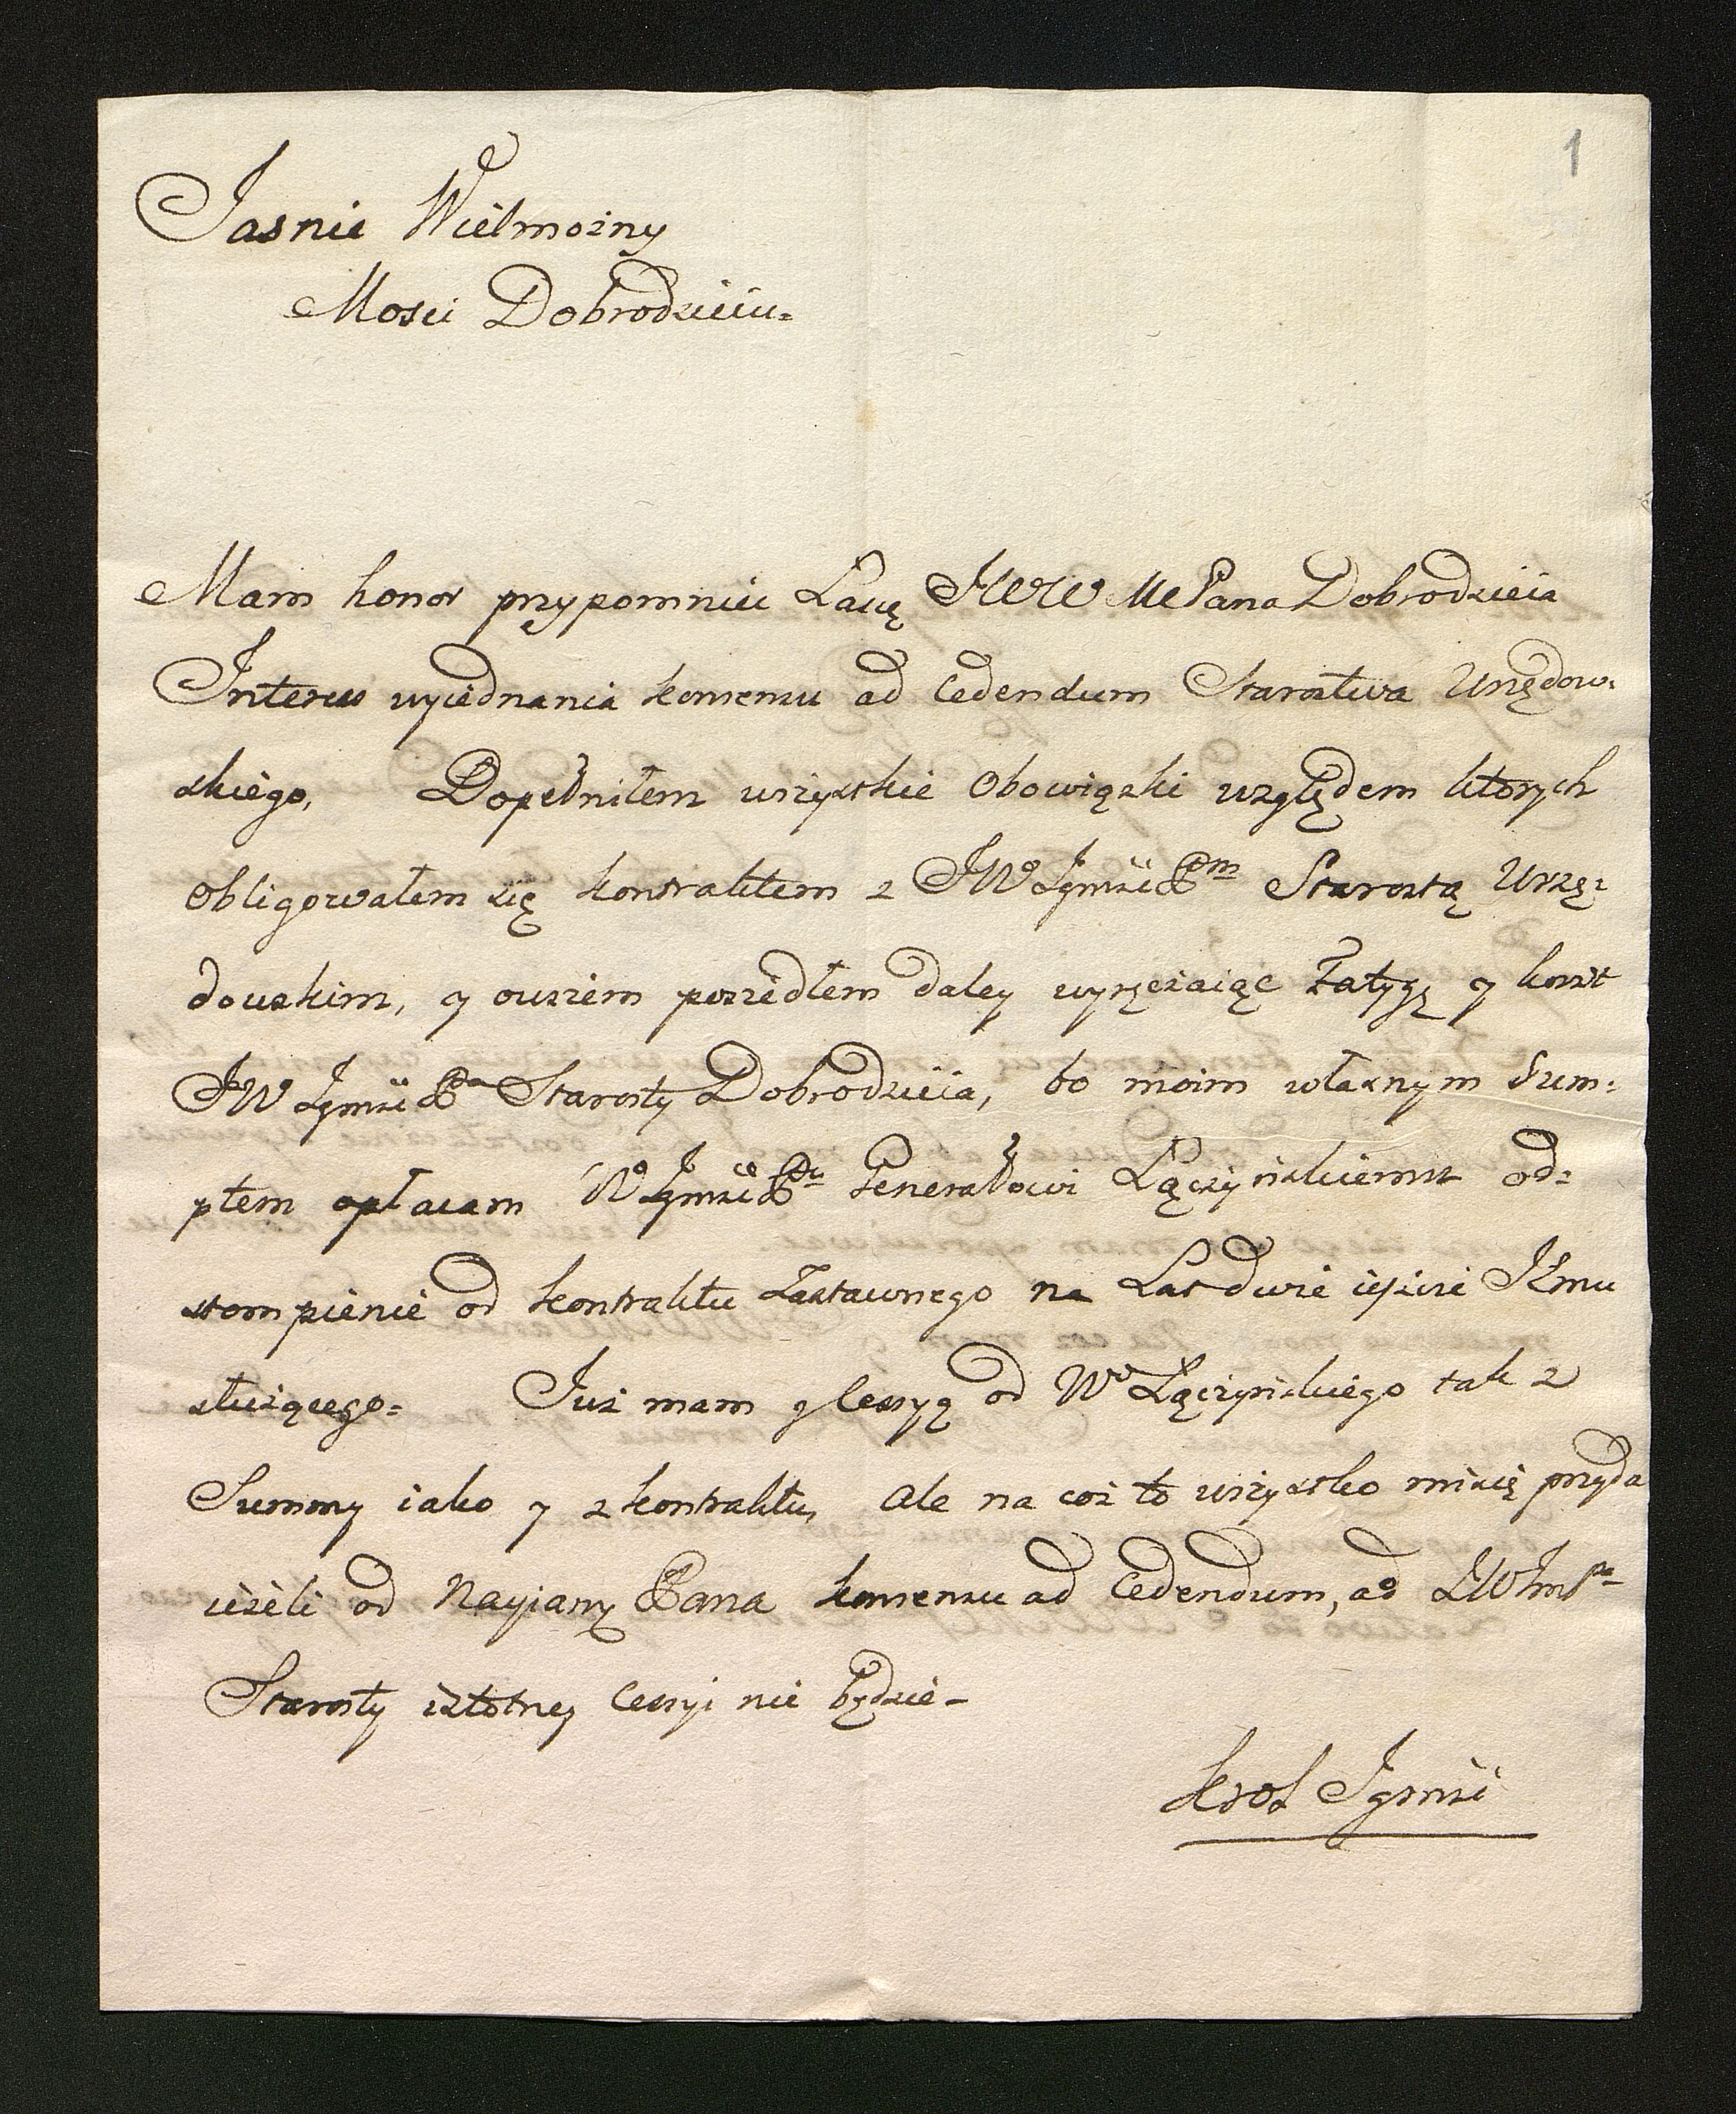 1
Jasnie Wielmozny
Mosci Dobrodzieiu=
Mam honor przypomniec Łascę JWW Me Pana Dobrodzieia
Interess wyiednania konsensu ad Cedendum Starostwa Urzędow=
skiego, Dopełniłem wszystkie Obowiązki względem ktorych
Obligowałem się kontraktem z JW Jgmsci Pm Starostą Urzę=
dowskim, y owszem poszedłem daley wyręczaiąc Fatygę y koszt
JW Jgmsci Pa Starosty Dobrodzieia, bo moim własnym Sum=
ptem opłacam W Jgmsci Pu Generałowi Łączyńskiemu od=
stompienie od kontraktu Zastawnego na Lat dwie ieszcze Jemu
słuzącego= Juz mam y Cessyą od Wo Łączyńskiego tak z
Summy iako y z kontraktu, Ale na coz to wszystko mi się przyda
iezeli od Nayjasny Pana konsensu ad Cedendum, ad JW Jm Pa
Starosty istotney Cessyi nie będzie-
Krol Jgmsci